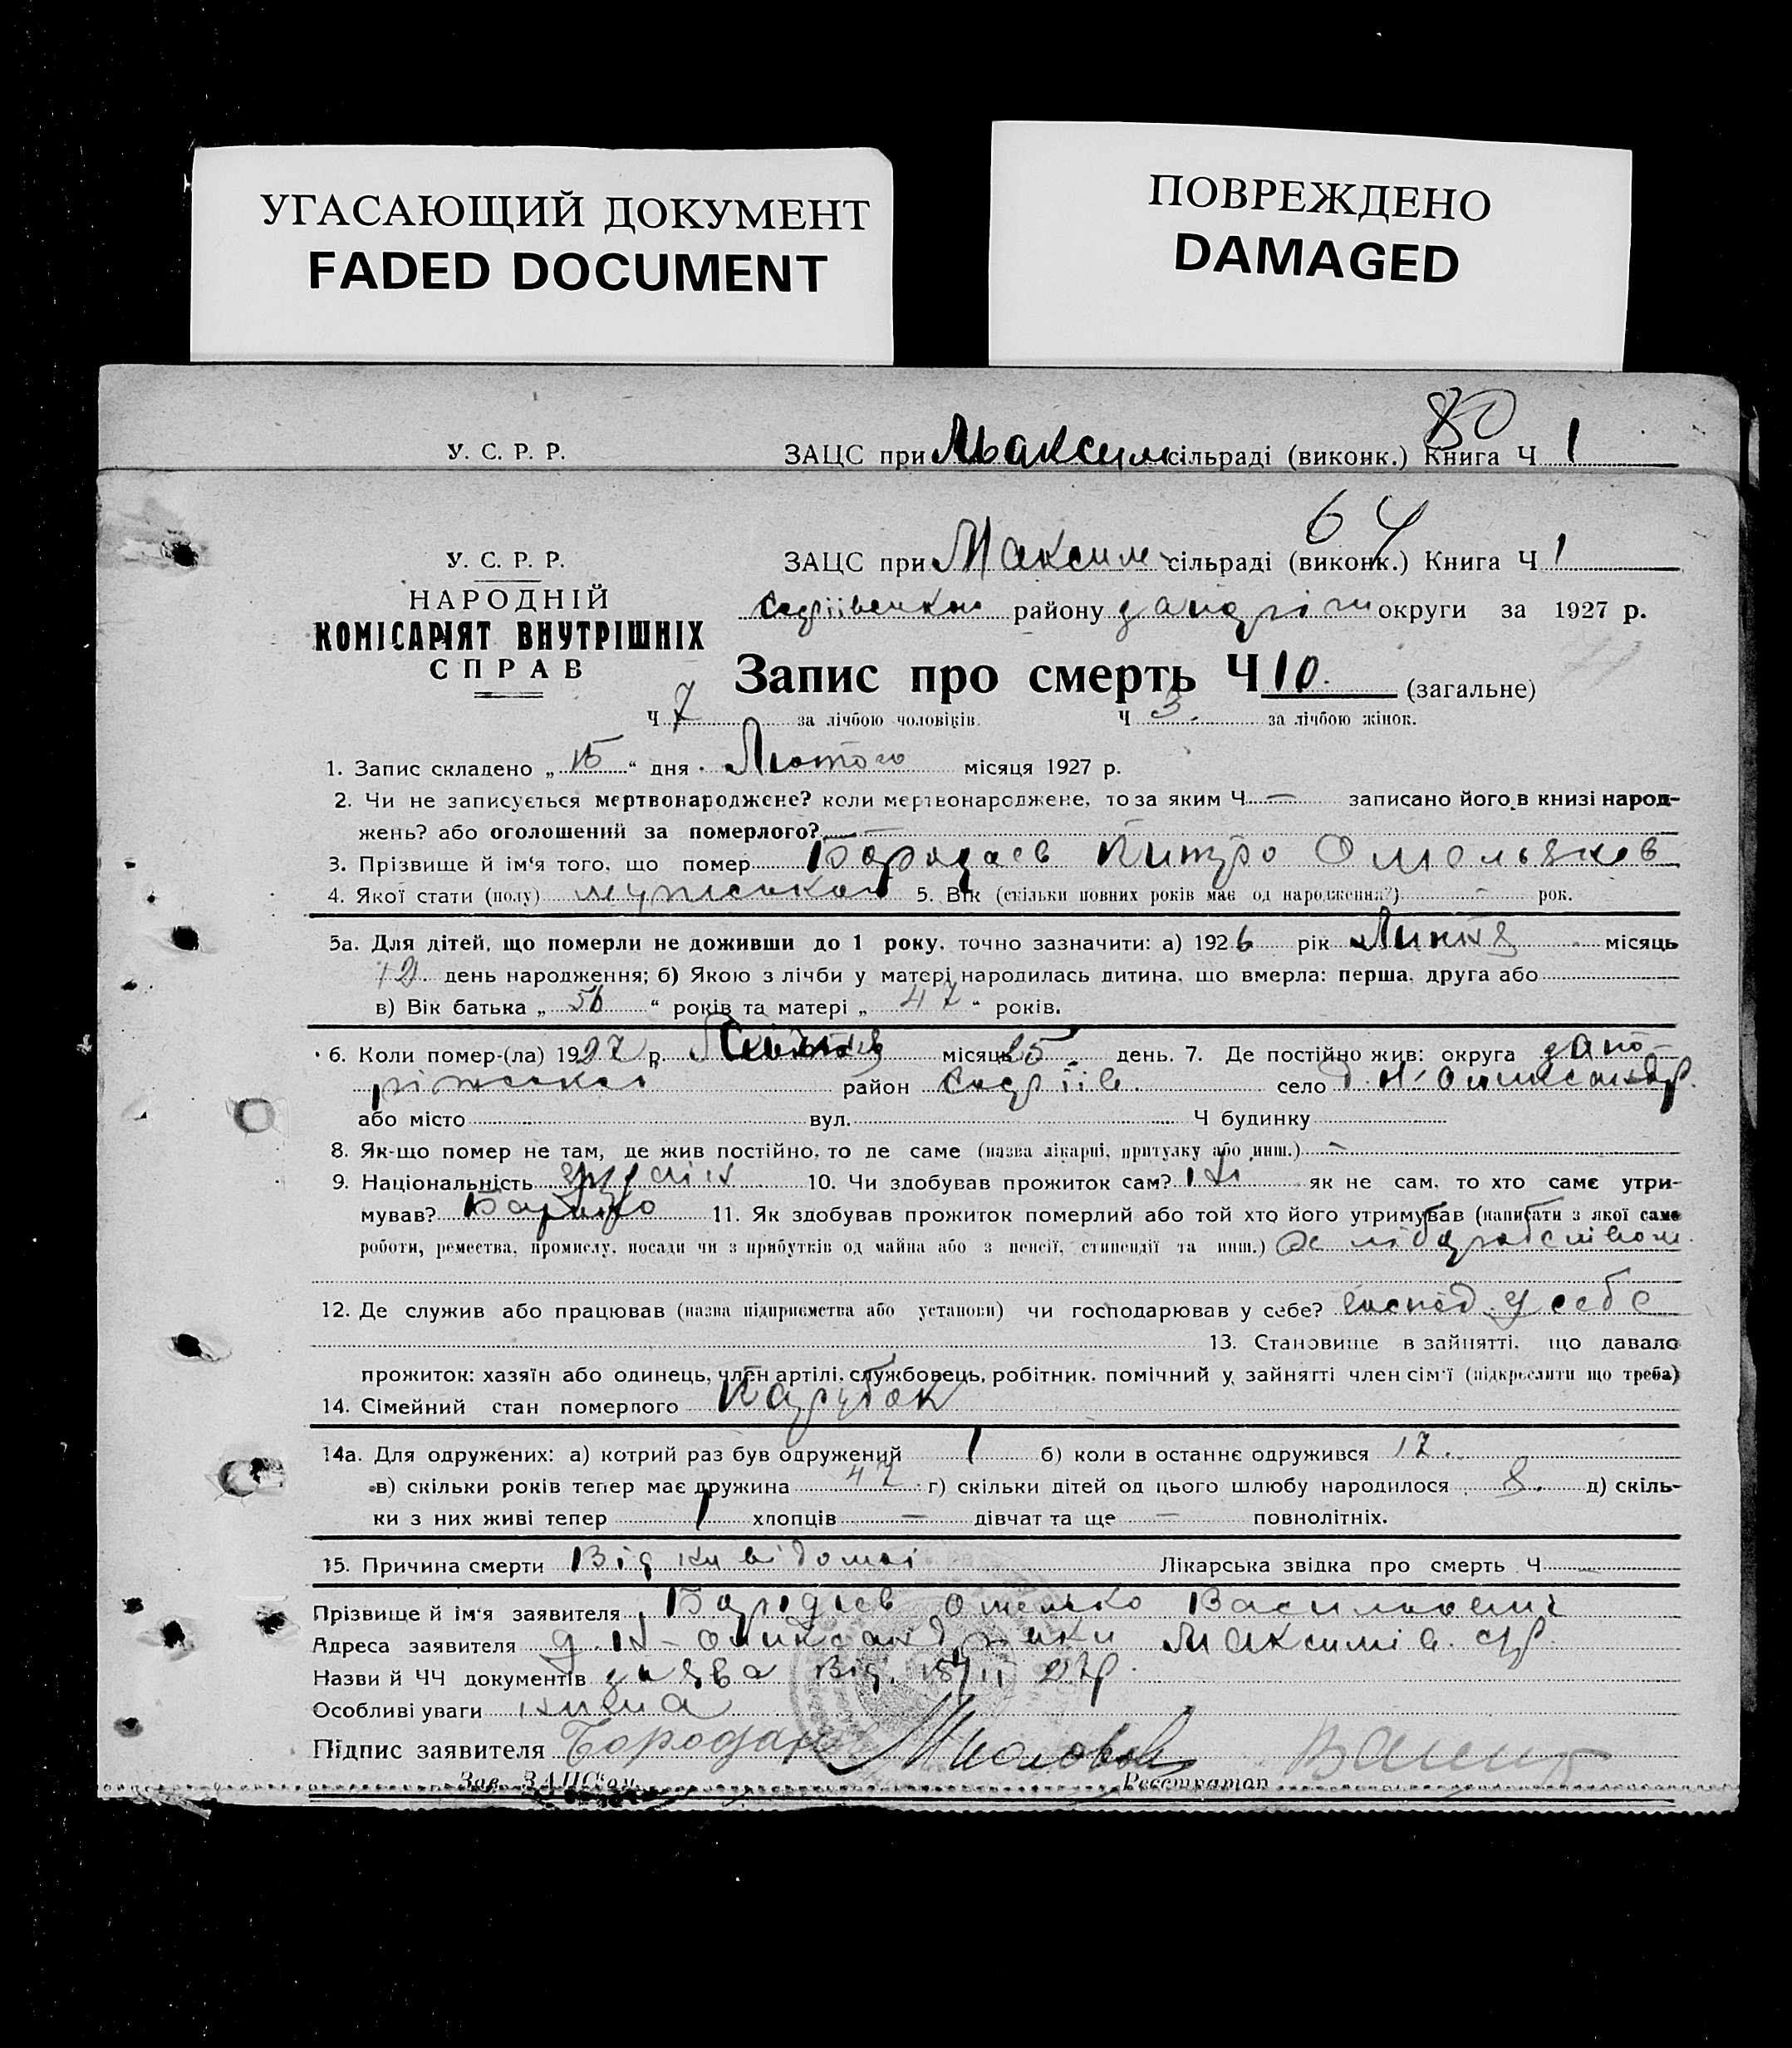 УГАСАЮЩИЙ ДОКУМЕНТ
FADED DOCUMENT
ПОВРЕЖДЕНО
DAMAGED
80
У. С. Р. Р. ЗАЦС при Максим сільраді (виконк.) Книга Ч 1
64
У. С. Р. Р. ЗАЦС при Максим сільраді (виконк.) Книга Ч 1
НАРОДНІЙ району округи за 1927 р.
КОМІСАРІЯТ ВНУТРІШНІХ
СПРАВ
Запис про смерть Ч 10. (загальне)
Ч 7 за лічбою чоловіків. Ч 3. за лічбою жінок.
1. Запис складено „ 15 “ дня Лютого місяця 1927 р.
2. Чи не записується мертвонароджене? коли мертвонароджене, то за яким Ч — записано його в книзі народ-
жень? або оголошений за померлого? —
3. Прізвище й ім'я того, що помер Бородаев
4. Якої стати (полу) мужської 5. Вік (скільки повних років має од народження?) - рок.
5а. Для дітей, що померли не доживши до 1 року, точно зазначити: а) 1926 рік місяць
12 день народження; б) Якою з лічби у матері народилась дитина, що вмерла: перша, друга або
в) Вік батька „ 56 “ років та матері „ 47 “ років.
6. Коли помер-(ла) 1927 р. місяць 15 день. 7. Де постійно жив: округа Запо-
ріжської район село
або місто вул. Ч будинку
8. Як-що помер не там, де жив постійно, то де саме (назва лікарні, притулку або инш.) —
9. Національність 10. Чи здобував прожиток сам? Ні як не сам, то хто саме утри-
мував? Батько 11. Як здобував прожиток померлий або той хто його утримував (написати з якої саме
роботи, ремества, промислу, посади чи з прибутків од майна або з пенсії, стипендії та инш.)
12. Де служив або працював (назва підприємства або установи) чи господарював у себе? господ. у себе
13. Становище в зайнятті, що давало
прожиток: хазяїн або одинець, член артілі, службовець, робітник, помічний у зайнятті член сім'ї (підкреслити що треба)
14. Сімейний стан померлого Парубок
14а. Для одружених: а) котрий раз був одружений 1 б) коли в останнє одружився 17.
в) скільки років тепер має дружина 47 г) скільки дітей од цього шлюбу народилося 8. д) скіль-
ки з них живі тепер 1 хлопців — дівчат та ще — повнолітніх.
15. Причина смерти Від Лікарська звідка про смерть Ч
Прізвище й ім'я заявителя Бородаев Омелько Васильович
Адреса заявителя
Назви й ЧЧ документів заява від 15/II 27р.
Особливі уваги нима
Підпис заявителя
Зав. ЗАЦСом Реєстратор